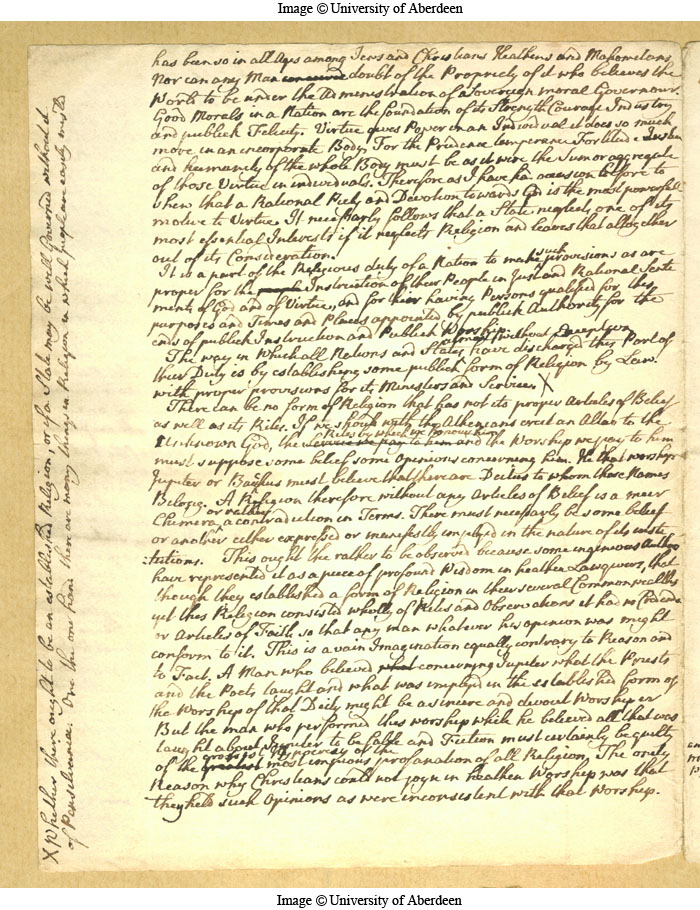 Image © University of Aberdeen
has been so in all Ages among Jews and Christians Heathens and Mahometans
Nor can any Man conceive doubt of the Propriety of it who believes the
World to be under the Administration of a Sovereign moral Governour.
Good Morals in a Nation are the foundation of its Strength Courage Industry
and publick Felicity. Virtue gives Power in an Individual it does so much
more in an incorporate Body. For the Prudence temperance Fortitude Justice
and humanity of the whole Body must be as it were the Sum or aggregate
of those Virtues in individuals. Therefore as I have had accasion before to
shew that a Rational Piety and Devotion towards God is the most powerfull
motive to Virtue. It necessarly follows that a State neglects one of its
most essential Interests if it neglects Religion and leaves that altogether
out of its Consideration.
It is a part of the Religious duty of a Nation to make such provisions as are
proper for the people Instruction of their People in Just and Rational Senti
ments of God and of Virtue, and for their having Persons qualified for this
purposes and Times and Places appointed by publick Authority for the
ends of publick Instruction and Publick Worship.
The way in which all Nations and States almost without Exception have discharged this Part of
their Duty is by establishing some publick form of Religion by Law.
with proper provisions for its Ministers and Services X
There can be no form of Religion that has not its proper Articles of Belief
as well as its Rites. If we should with the Athenians erect an Altar to the
Unknown God, the Service we pay to him Rites by which we honour him and the Worship we pay to him
must suppose some belief some Opinions concerning him. He that worships
Jupiter or Bacchus must believe that there are Deities to whom those Names
Belong. A Religion therefore without any Articles of Belief is a meer
Chimera, or rather a contradiction in Terms. There must necessarly be some belief
or another either expressed or manifestly implyed in the nature of its insti
tutions. This ought the rather to be observed because some ingenious Authors
have represented it as a piece of profound Wisdom in heathen Lawgivers, that
though they established a form of Religion in their several Commonwealths
yet this Religion consisted wholly of Rites and Observations it had no Creeds
or Articles of Faith, so that any man whatever his opinion was might
conform to it. This is a vain Imagination equally contrary to Reason and
to Fact. A Man who believed what concerning Jupiter what the Priests
and the Poets taught and what was implyd in the established form of
the Worship of that Deity might be a sincere and devout Worshiper
But the man who performed this worship while he believed all that was
taught about Jupiter to be fable and Fiction must certainly be guilty
of the greatest grossest Hypocrisy of the most impious profanation of all Religion. The only
Reason why Christians could not joyn in Heathen Worship was that
they held such Opinions as were inconsistent with that Worship.
X Whether there ought to be an established Religion, or if a State may be well Governed without it
of Pensilvania. On the one hand there are many things in Religion in which people are easily misled
Image © University of Aberdeen